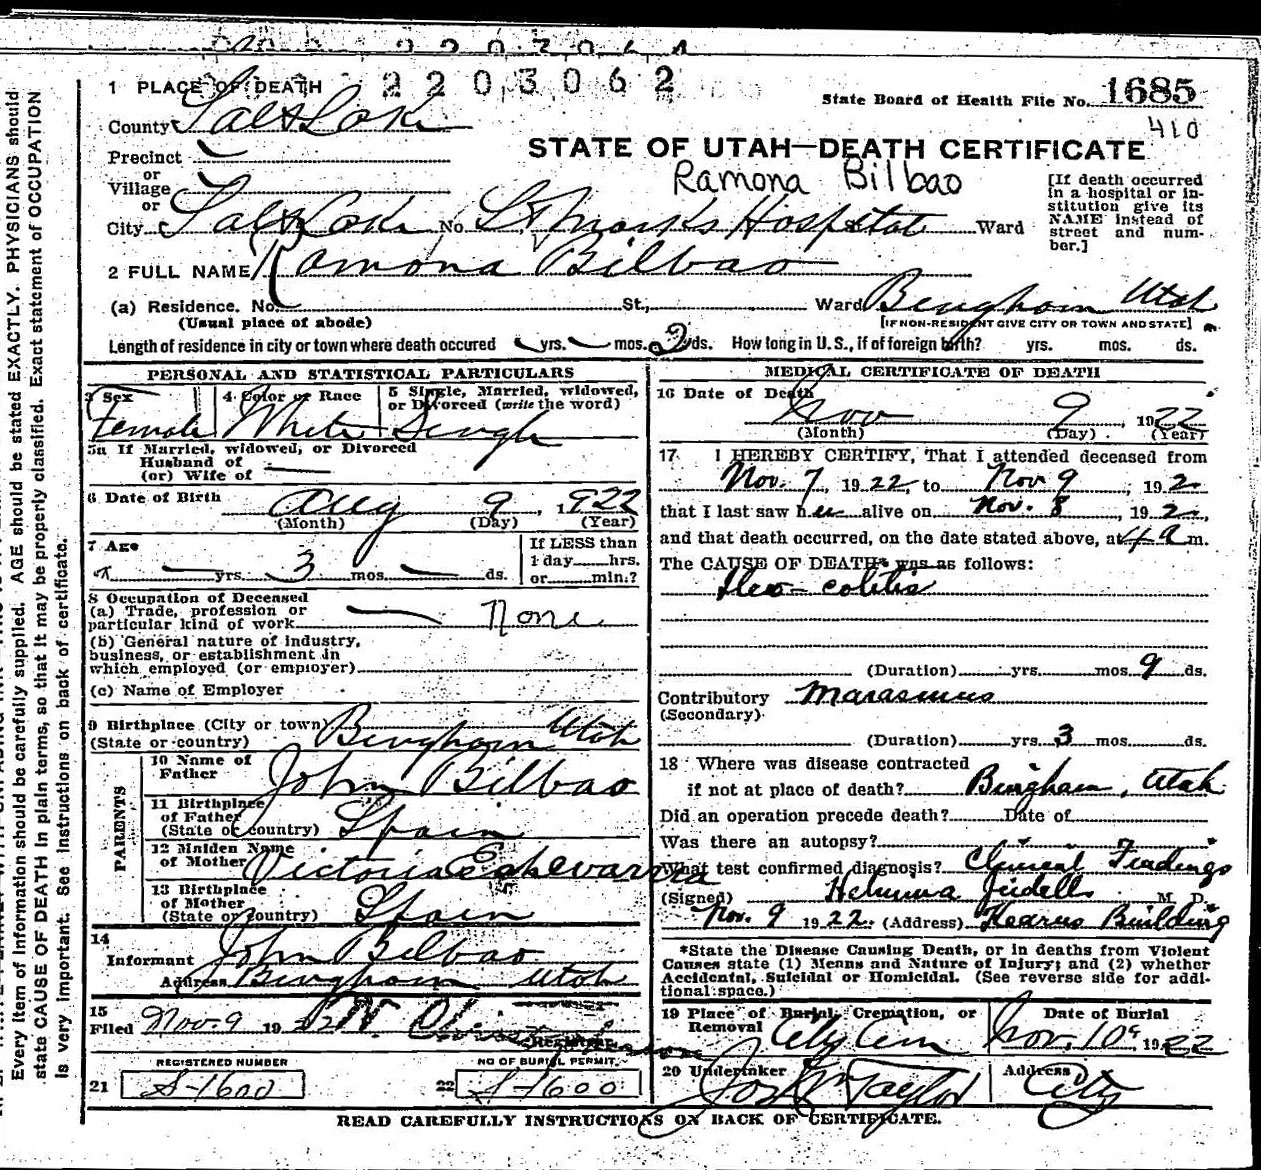 2203062
1 PLACE OF DEATH
State Board of Health File No. 1685
410
County Salt Lake
STATE OF UTAH—DEATH CERTIFICATE
Precinct
or
Village
or
Ramona Bilbao
[If death occurred in a hospital or institution give its NAME instead of street and number.]
City Salt Lake No. St Marks Hospital St. Ward
2 FULL NAME Ramona Bilbao
(a) Residence. No. St., Ward Bingham Utah
(Usual place of abode)
[IF NON-RESIDENT GIVE CITY OR TOWN AND STATE]
Length of residence in city or town where death occured yrs. mos. 2 ds. How long in U.S., if of foreign birth? yrs. mos. ds.
PERSONAL AND STATISTICAL PARTICULARS
3 Sex
Female
4 Color or Race
White
5 Single, Married, widowed, or Divorced (write the word)
Single
5a If Married, widowed, or Divorced
Husband of
(or) Wife of
6 Date of Birth
Aug 9, 1922
(Month) (Day) (Year)
7 Age
yrs. 3 mos. ds.
If LESS than
1 day hrs.
or min.?
8 Occupation of Deceased
(a) Trade, profession or
particular kind of work None
(b) General nature of industry,
business, or establishment in
which employed (or employer)
(c) Name of Employer
9 Birthplace (City or town) Bingham Utah
(State or country)
PARENTS
10 Name of
Father John Bilbao
11 Birthplace
of Father
(State or country) Spain
12 Maiden Name
of Mother Victoria Echevarria
13 Birthplace
of Mother
(State or country) Spain
14
Informant John Bilbao
Address Bingham Utah
15
Filed Nov. 9 1922
Registrar
REGISTERED NUMBER
21 S-1600
NO OF BURIAL PERMIT
22 S-1600
MEDICAL CERTIFICATE OF DEATH
16 Date of Death
Nov 9, 1922
(Month) (Day) (Year)
17 I HEREBY CERTIFY, That I attended deceased from
Nov. 7, 1922, to Nov 9, 192
that I last saw her alive on Nov. 8, 192,
and that death occurred, on the date stated above, at 4 a m.
The CAUSE OF DEATH* was as follows:
Ileo-colitis
(Duration) yrs. mos. 9 ds.
Contributory Marasmus
(Secondary)
(Duration) yrs. 3 mos. ds.
18 Where was disease contracted
if not at place of death? Bingham, Utah
Did an operation precede death? Date of
Was there an autopsy?
What test confirmed diagnosis? Clinical Findings
(Signed) M. D.
Nov. 9 1922. (Address) Kearns Building
*State the Disease Causing Death, or in deaths from Violent
Causes state (1) Means and Nature of Injury; and (2) whether
Accidental, Suicidal or Homicidal. (See reverse side for additional space.)
19 Place of Burial, Cremation, or
Removal City Cem
Date of Burial
Nov. 10 1922
20 Undertaker
Jos Wm Taylor
Address
City
READ CAREFULLY INSTRUCTIONS ON BACK OF CERTIFICATE.
Every item of information should be carefully supplied. AGE should be stated EXACTLY. PHYSICIANS should
state CAUSE OF DEATH in plain terms, so that it may be properly classified. Exact statement of OCCUPATION
is very important. See instructions on back of certificate.